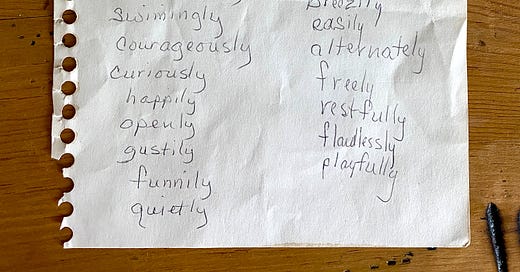 swimingly
courageously
curiously
happily
openly
gustily
funnily
quietly
breezily
easily
alternately
freely
restfully
flawlessly
playfully